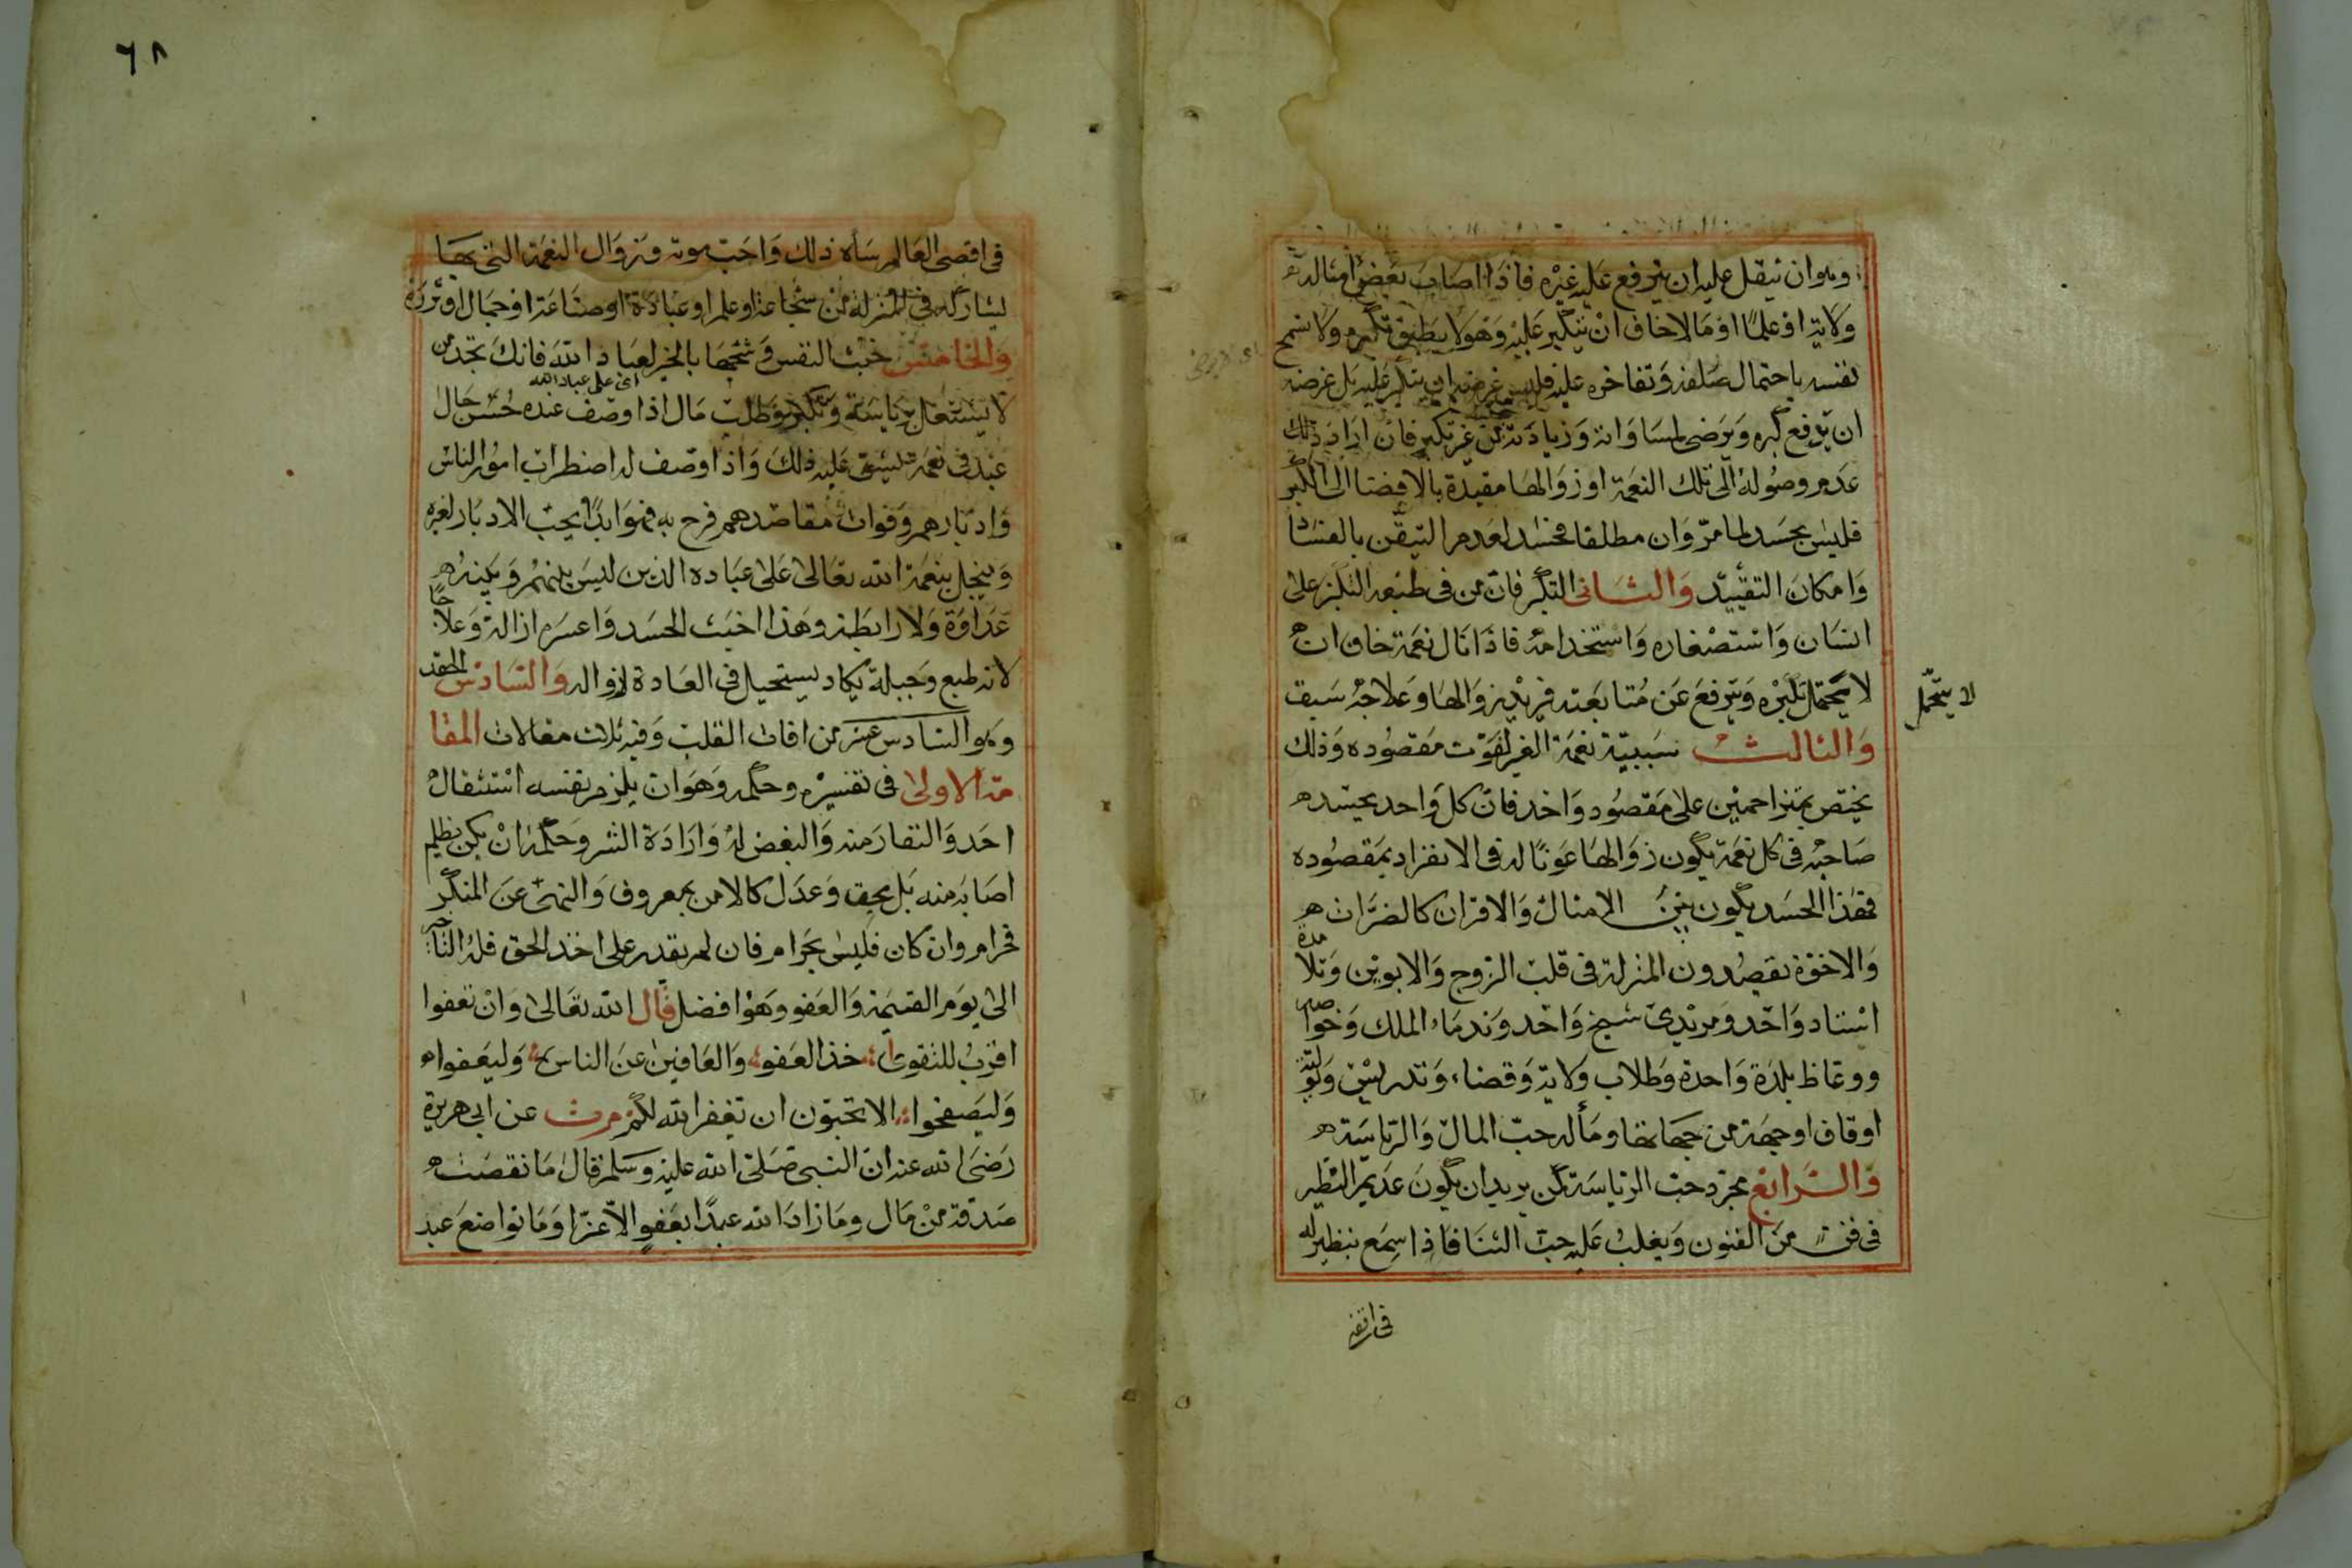 وهوان يثقل عليه ان يترفع عليه غيره فاذا اصاب بعض امثاله
ولاية او علما او مالا خاف ان يتكبر عليه وهو لا يطيق تكبره ولا تسمح
نفسه باحتمال صلفه وتفاخره عليه فليس غرضه ان يتكبر عليه بل غرضه
ان يدفع كبره ويرضى بمساواته وزيادته من غير تكبر فان اراد ذلك
عدم وصوله الى تلك النعمة او زوالها مقيدة بالافضا الى الكبر
فليس بحسد لما مرّ وان مطلقا فحسد لعدم التيقّن بالفشا
وامكان التقييد والثانى التكبر فان من فى طبعه التكبر على
انسان واستصغاره واستخدامه فاذا نال نعمة خاف ان
لا يحتمل تكبره ويترفع عن متابعته فيريد زوالها وعلاجه سبق
لا يتحمل
والثالث سببيّة نعمة الغير لفوت مقصوده وذلك
يختص بمتزاحمين على مقصود واحد فان كل واحد يحسد
صاحبه فى كل نعمة يكون زوالها عونا له فى الانفراد بمقصوده
فهذا الحسد يكون بين الامثال والاقران كالضرّات
والاخوة يقصدون المنزلة فى قلب الزوج والابوين وتلامذة
استاد واحد ومريدى شيخ واحد وندماء الملك وخواصه
ووعاظ بلدة واحدة وطلاب ولاية وقضاء وتدريس وتولية
اوقاف او جهة من جهاتها ومآله حب المال والرياسة
والرابع مجرد حب الرياسة كمن يريد ان يكون عديم النظير
فى فن من الفنون ويغلب عليه حب الثنا فاذا سمع بنظير له
فى اقصى
٦٨
فى اقصى العالم ساءه ذلك واحب موته وزوال النعمة التى بها
يشاركه فى المنزلة من شجاعة او علم او عبادة او صناعة او جمال او ثروة
والخامس خبث النفس وشحها بالخير لعباد الله فانك تجد من
لا يشتغل برياسة وتكبر وطلب مال اذا وصف عنده حسن حال
اى على عباد الله
عبد فى نعمة يشق عليه ذلك واذا وصف له اضطراب امور الناس
وادبارهم وفوات مقاصدهم فرح به فهو ابدا يحب الادبار لغيره
ويبخل بنعمة الله تعالى على عباده الذين ليس بينهم وبينه
عداوة ولا رابطة وهذا اخبث الحسد واعسره ازالة وعلاجا
لانه طبع وجبلة يكاد يستحيل فى العادة زواله والسادس الحقد
وهو السادس عشر من افات القلب وفيه ثلاث مقالات المقا
لة الاولى فى تفسيره وحكمه وهو ان يلزم نفسه استثقال
احد والنفار منه والبغض له وارادة الشر وحكمه ان يكن بظلم
اصابه منه بل بحق وعدل كالامر بمعروف والنهى عن المنكر
فحرام وان كان فليس بحرام فان لم يقدر على اخذ الحق فله التاخير
الى يوم القيمة والعفو وهو افضل قال الله تعالى وان تعفوا
اقرب للتقوى خذ العفو والعافين عن الناس وليعفوا
وليصفحوا الا تحبون ان يغفر الله لكم مرت عن ابى هريرة
رضى الله عنه ان النبى صلى الله عليه وسلم قال ما نقصت
صدقة من مال وما زاد الله عبدا بعفو الا عزا وما تواضع عبد